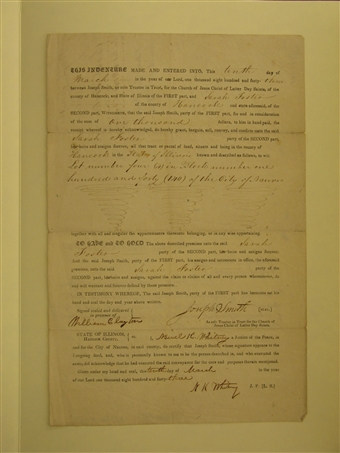 THIS INDENTURE MADE AND ENTERED INTO, This tenth day of
March in the year of our Lord, one thousand eight hundred and forty three
between Joseph Smith, as sole Trustee in Trust, for the Church of Jesus Christ of Latter Day Saints, of the
county of Hancock and State of Illinois of the FIRST part, and Sarah Foster
of the county of Hancock and state aforesaid, of the
SECOND part, Witnesseth, that the said Joseph Smith, party of the FIRST part, for and in consideration
of the sum of one thousand dollars, to him in hand paid, the
receipt whereof is hereby acknowledged, do hereby grant, bargain, sell, convey, and confirm unto the said
Sarah Foster party of the SECOND PART,
her heirs and assigns forever, all that tract or parcel of land, situate and being in the county of
Hancock in the State of Illinois known and described as follows, to wit:
Lot number four in Block number one
hundred and forty (140) of the City of Nauvoo
together with all and singular the appurtenances thereunto belonging, or in any wise appertaining
TO HAVE AND TO HOLD The above described premises unto the said Sarah
Foster party of the SECOND PART, her heirs and assigns forever;
And the said Joseph Smith, party of the FIRST PART,
premises unto the said Sarah Foster party of the
SECOND PART, heirs and assigns, against the claim or claims of all and every person whomsoever,
and will warrant and forever defend by these presents.
IN TESTIMONY WHEREOF, The said party of the FIRST PART has hereunto set his
hand and seal the day and year above written.
Signed sealed and delivered
in presence of
Joseph Smith [SEAL.]
William Clayton
As sole Trustee in Trust for the Church of
Jesus Christ of Latter Day Saints.
STATE OF ILLINOIS,
Hancock County,
K. Whitney a Justice of the Peace, in
and for the City of Nauvoo, in said county, do certify that Joseph Smith, whose signature appears to the
foregoing deed, and, who is personally known to me to be the person described in, and who executed the
same, did acknowledge that he had executed the said conveyance for the uses and purposes therein mentioned.
Given under my hand and seal, this tenth day March in the year
of our Lord one thousand eight hundred and forty three
K. Whitney J. P. [L. S.]